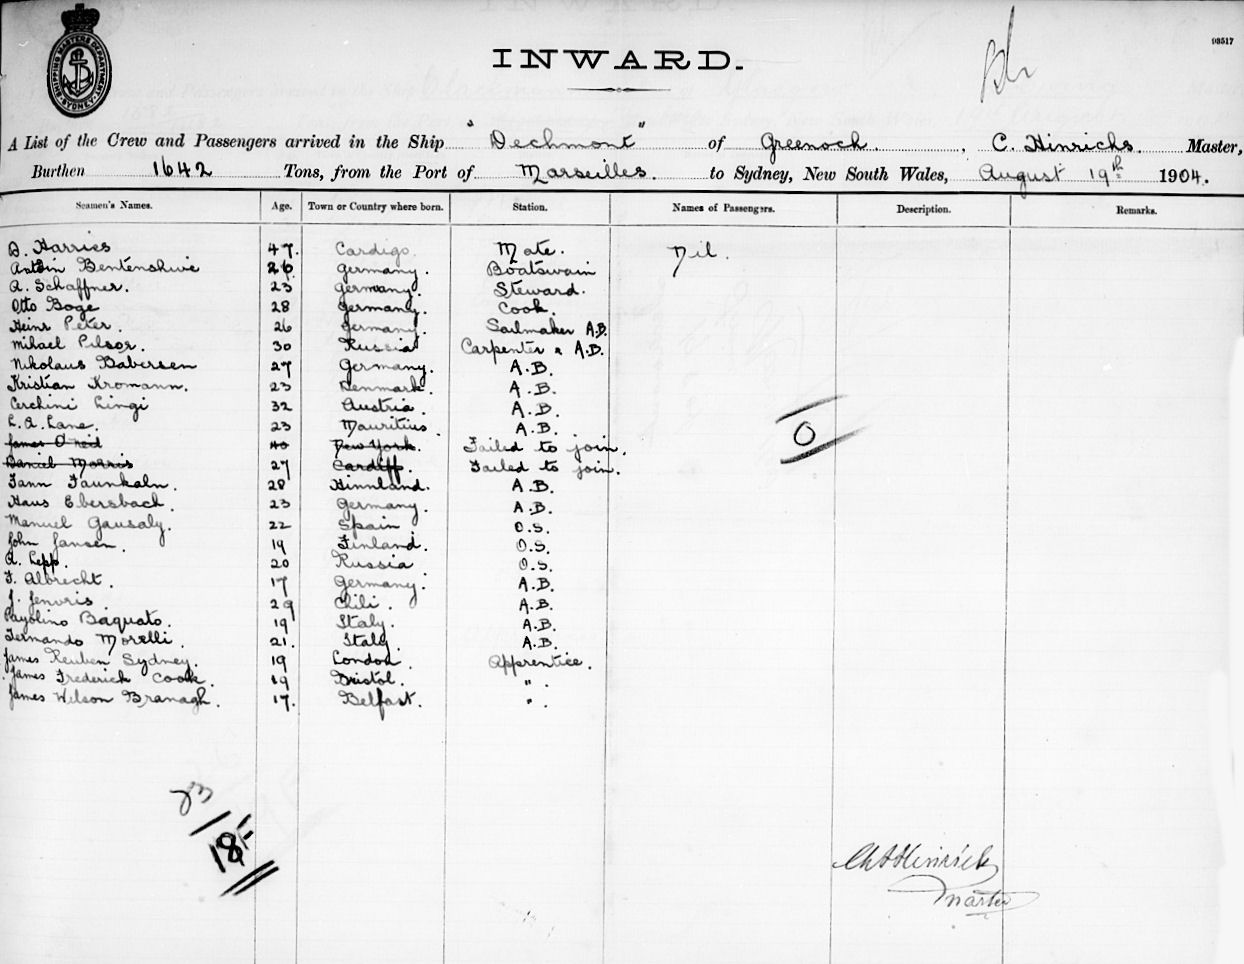 SHIPPING MASTER'S DEPARTMENT SYDNEY
93517
INWARD.
A List of the Crew and Passengers arrived in the Ship "Dechmont" of Greenock, C. Hinrichs. Master,
Burthen 1642 Tons, from the Port of Marseilles. to Sydney, New South Wales, August 19th 1904.
Seamen's Names. Age. Town or Country where born. Station. Names of Passengers. Description. Remarks.
B. Harries 47. Cardigo. Mate. Nil.
Bentenshwie 26. Germany. Boatswain
A. Schaffner. 23 Germany. Steward.
Otto Boge 28 Germany. Cook.
Heinr Peter. 26 Germany. Sailmaker A.B.
Mihael Pilsor. 30 Russia Carpenter & A.B.
Nikolaus Babersen 27 Germany. A.B.
Kristian Kromann. 23 Denmark. A.B.
Cerchini Lingi 32 Austria. A.B.
L.A. Lane. 23 Mauritius. A.B.
James O'Neid 40 New York. Failed to join.
Daniel Morris 27 Cardiff. Failed to join.
Jann Jaunkaln. 28 Hinnland. A.B.
Haus Ebersbach. 23 Germany. A.B.
Manuel Gausaly. 22 Spain O.S.
John Jansen. 19 Finland. O.S.
A. Lepp. 20 Russia O.S.
F. Albrecht. 17 Germany. A.B.
J. Jenvris. 29 Chili. A.B.
Payolino Baquato. 19 Italy. A.B.
Fernando Morelli. 21. Italy. A.B.
James Reuben Sydney. 19 London. Apprentice.
James Frederick Cook. 19 Bristol. " .
James Wilson Branagh. 17. Belfast. " .
0
23/18/-
Hinrichs
Master